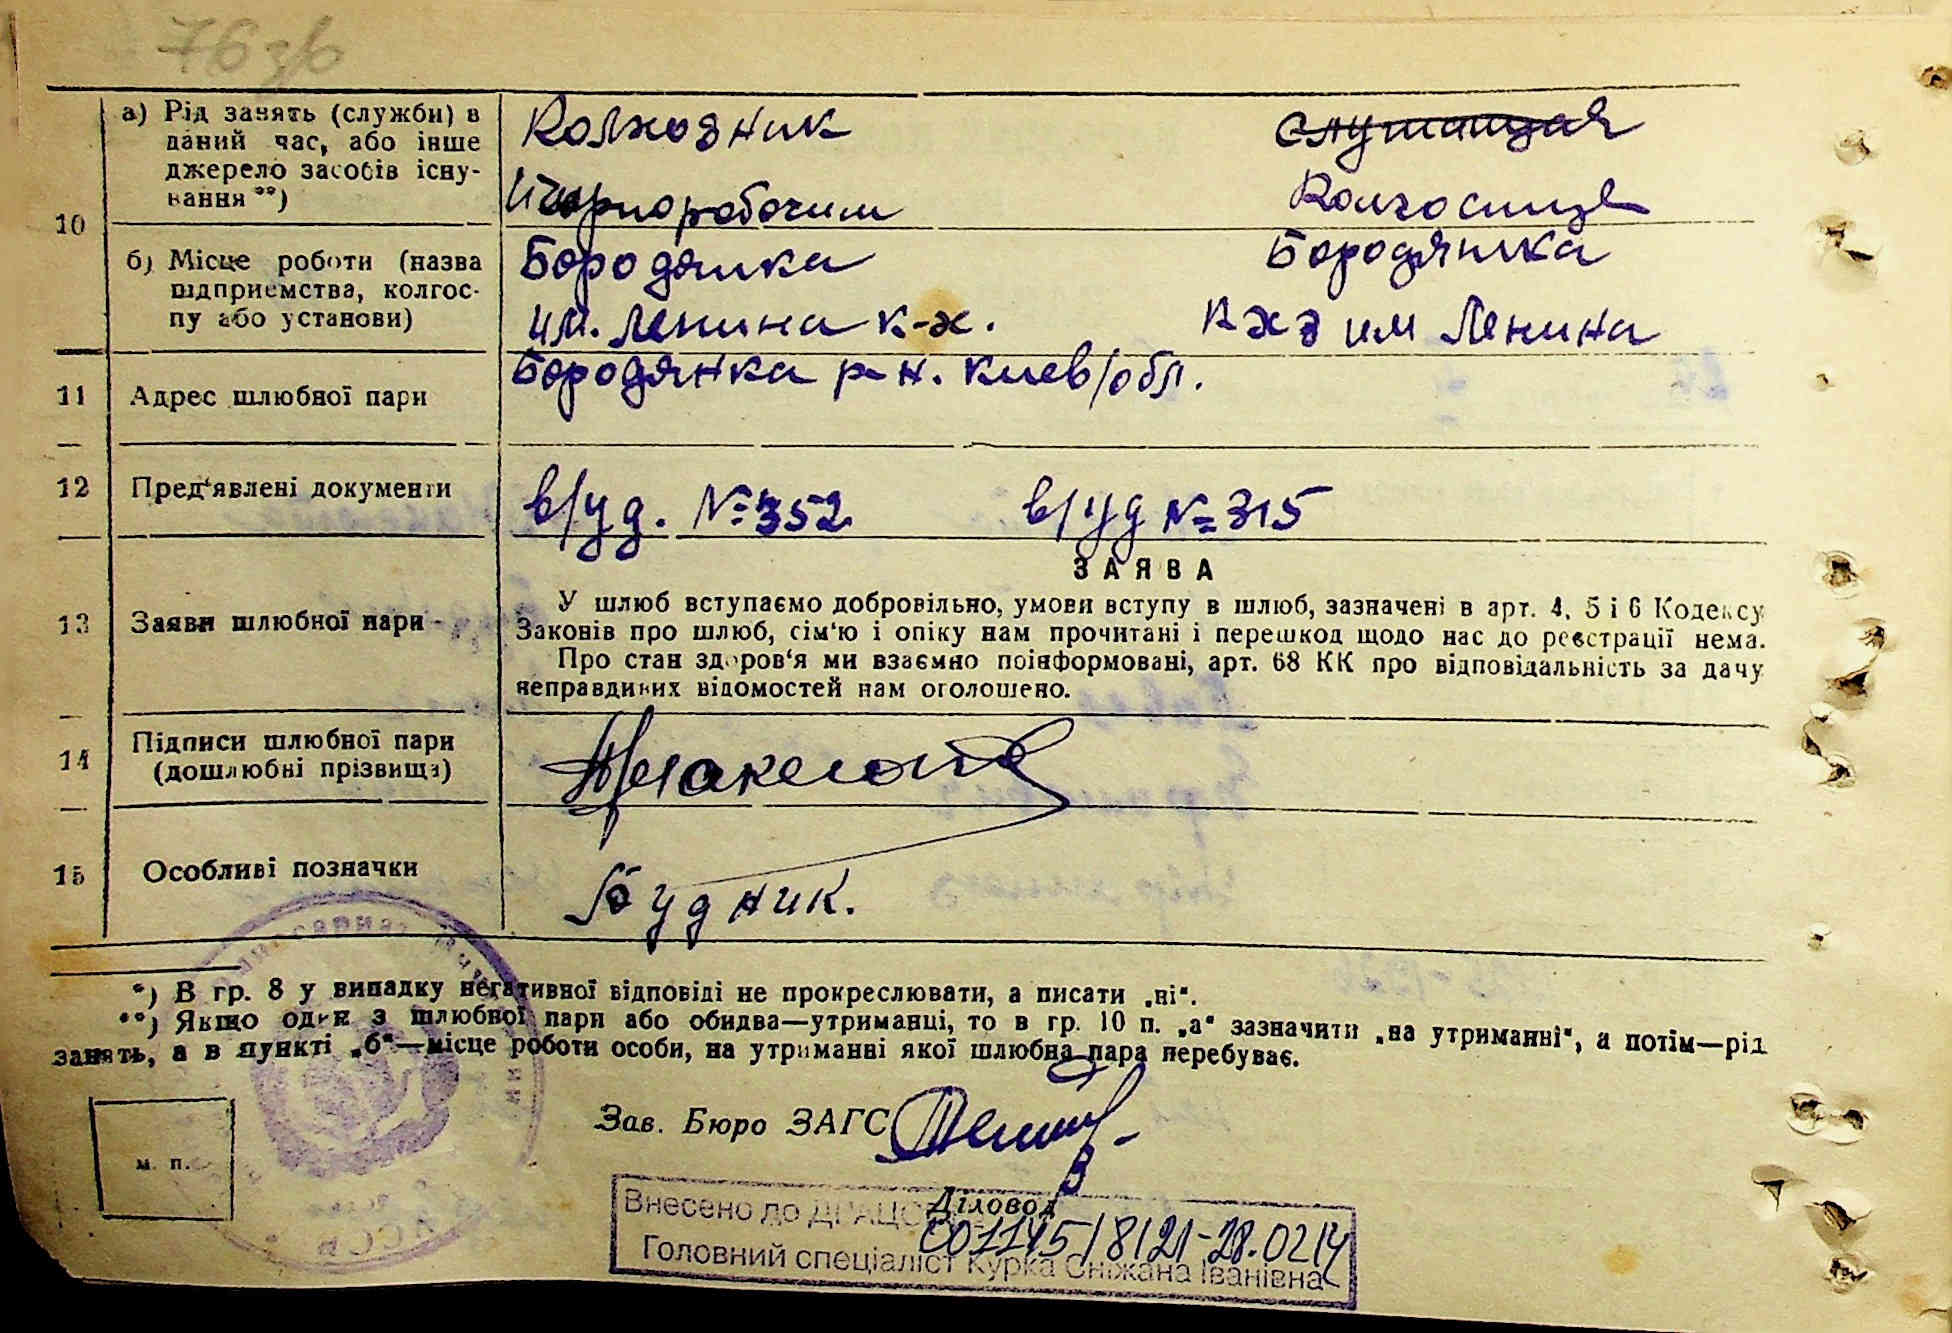 76 зв
10
а) Рід занять (служби) в даний час, або інше джерело засобів існування**)
Колхозник
чорноробочим
служащая
Колгоспниця
б) Місце роботи (назва підприємства, колгоспу або установи)
Бородянка
им. Ленина к-х.
Бородянка
кхз им Ленина
11
Адрес шлюбної пари
Бородянка р-н. Киев/обл.
12
Пред‘явлені документи
в/уд. №352
в/уд №315
13
Заяви шлюбної пари
ЗАЯВА
У шлюб вступаємо добровільно, умови вступу в шлюб, зазначені в арт. 4, 5 і 6 Кодексу
Законів про шлюб, сім‘ю і опіку нам прочитані і перешкод щодо нас до реєстрації нема.
Про стан здоров‘я ми взаємно поінформовані, арт. 68 КК про відповідальність за дачу
неправдивих відомостей нам оголошено.
14
Підписи шлюбної пари
(дошлюбні прізвища)
15
Особливі позначки
Будник.
*) В гр. 8 у випадку негативної відповіді не прокреслювати, а писати „ні“.
**) Якщо один з шлюбної пари або обидва—утриманці, то в гр. 10 п. „а“ зазначити „на утриманні“, а потім—рід
занять, а в пункті „б“—місце роботи особи, на утриманні якої шлюбна пара перебуває.
Зав. Бюро ЗАГС
м. п.
Діловод
Внесено до ДРАЦС
Головний спеціаліст Курка Сніжана Іванівна